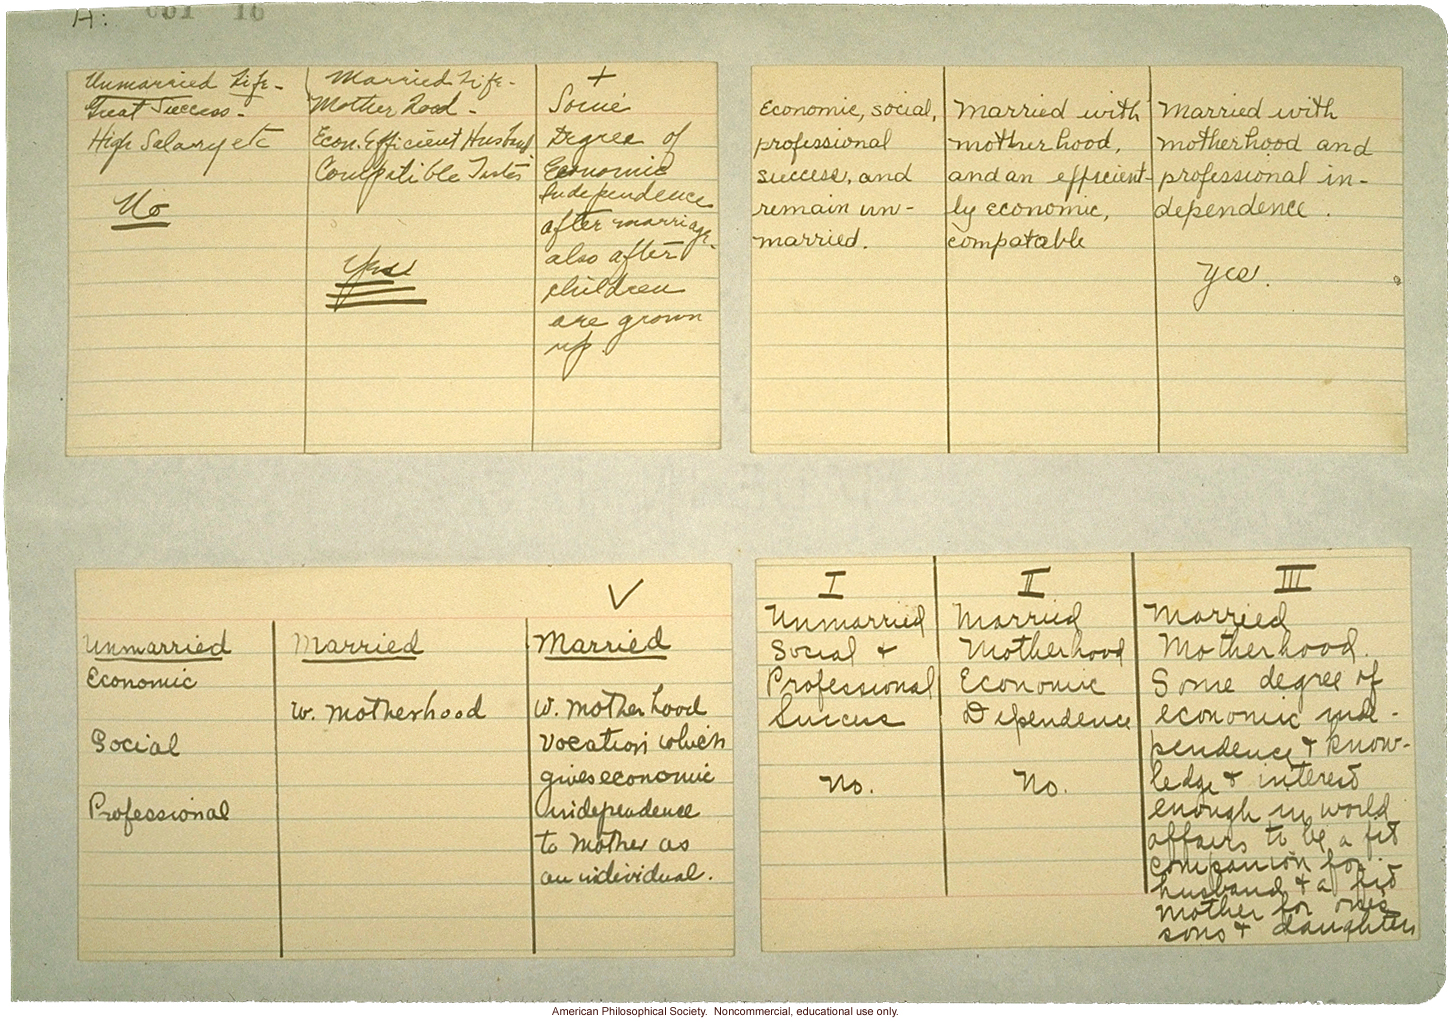 A:
001 16
Unmarried Life -
Great Success -
High Salary etc
No
Married Life -
Mother hood -
Econ. Efficient Husband
Compitible Tastes
Yes
+
Some
Degree of
Economic
Independence
after marriage -
also after
children
are grown
up.
Economic, social,
professional
success, and
remain un-
married.
Married with
motherhood,
and an efficient-
ly economic,
compatable
Married with
motherhood and
professional in-
dependence.
yes.
Unmarried
Economic
Social
Professional
Married
w. motherhood
V
Married
w. mother hood
vocation which
gives economic
independence
to mother as
an individual.
I
Unmarried
Social +
Professional
Success
No.
II
Married
Motherhood
Economic
Dependence
No.
III
Married
Motherhood.
Some degree of
economic inde-
pendence + know-
ledge + interest
enough in world
affairs to be a fit
companion for
husband + a fit
mother for one's
sons + daughters
American Philosophical Society. Noncommercial, educational use only.